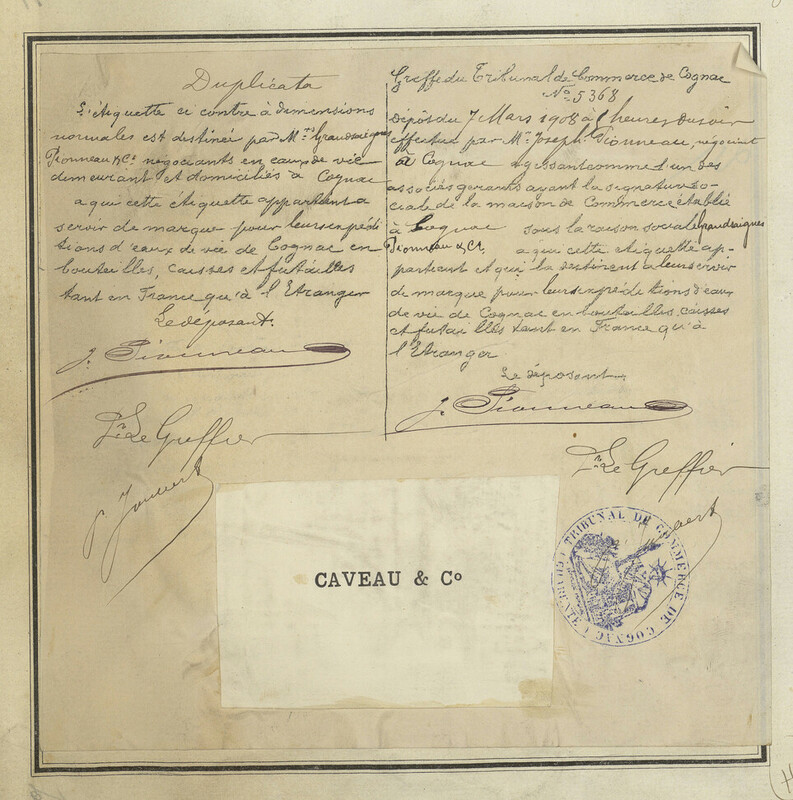 Duplicata
L'étiquette ci contre à dimensions
normales est destinée par Mrs Grandsaignes
Pionneau & Co. négociants en eaux de vie
demeurant et domiciliés à Cognac
a qui cette étiquette appartient a
servir de marque pour leurs expédi
tions d'eaux de vie de Cognac en
bouteilles, caisses et futailles
tant en France qu'à l'Etranger
Le déposant.
J. Pionneau
Pr Le Greffier
Greffe du Tribunal de Commerce de Cognac
No. 5368
Dépôt du 7 Mars 1908 à heures du soir
effectué par Mr. Joseph Pionneau, négociant
à Cognac agissant comme l'un des
associés gérants ayant la signature so-
ciale de la maison de Commerce établie
à Cognac sous la raison sociale Grandsaignes
Pionneau & Co. a qui cette étiquette ap-
partient et qui la destinent a leur servir
de marque pour leurs expéditions d'eaux
de vie de Cognac en bouteilles, caisses
et futailles tant en France qu'à
l'Etranger
Le déposant
J. Pionneau
Pr Le Greffier
CAVEAU & Co
TRIBUNAL DE COMMERCE DE COGNAC (CHARENTE)